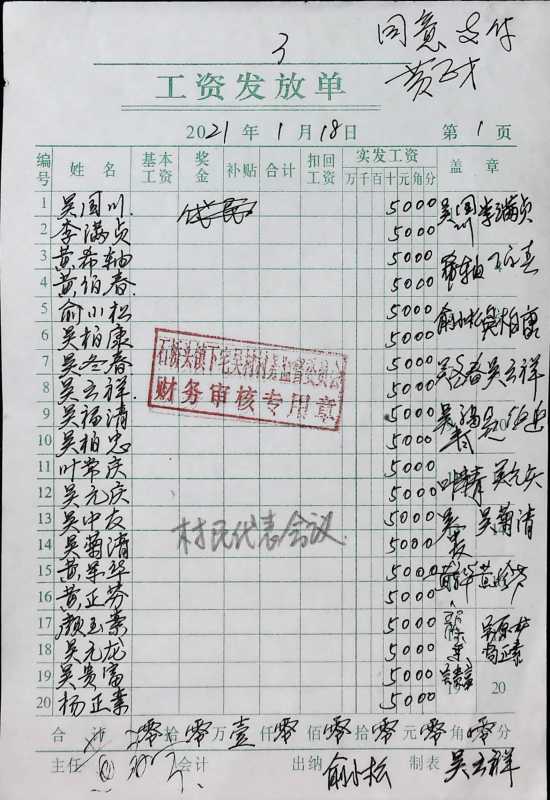 3
同意支付
工资发放单
2021年1月18日 第1页
编号 姓名 基本工资 奖金 补贴 合计 扣回工资 实发工资 万千百十元角分 盖章
1 吴国川 5000 吴国川
2 李满贞 5000 李满贞
3 黄希轴 5000
4 黄伯春 5000
5 俞小松 5000 俞小松
6 吴柏康 5000 吴柏康
7 吴冬春 5000 吴冬春
8 吴云祥 5000 吴云祥
9 吴福清 5000
10 吴柏忠 5000
11 叶常庆 5000
12 吴元庆 5000 吴元庆
13 吴中友 5000
14 吴菊清 5000 吴菊清
15 黄荣华 5000
16 黄正芬 5000
17 颜玉素 5000
18 吴元龙 5000
19 吴贵富 5000
20 杨正素 5000 20
石桥头镇下宅吴村村务监督委员会
财务审核专用章
村民代表会议
合计 零拾零万壹仟零佰零拾零元零角零分
主任 会计 出纳 俞小松 制表 吴云祥